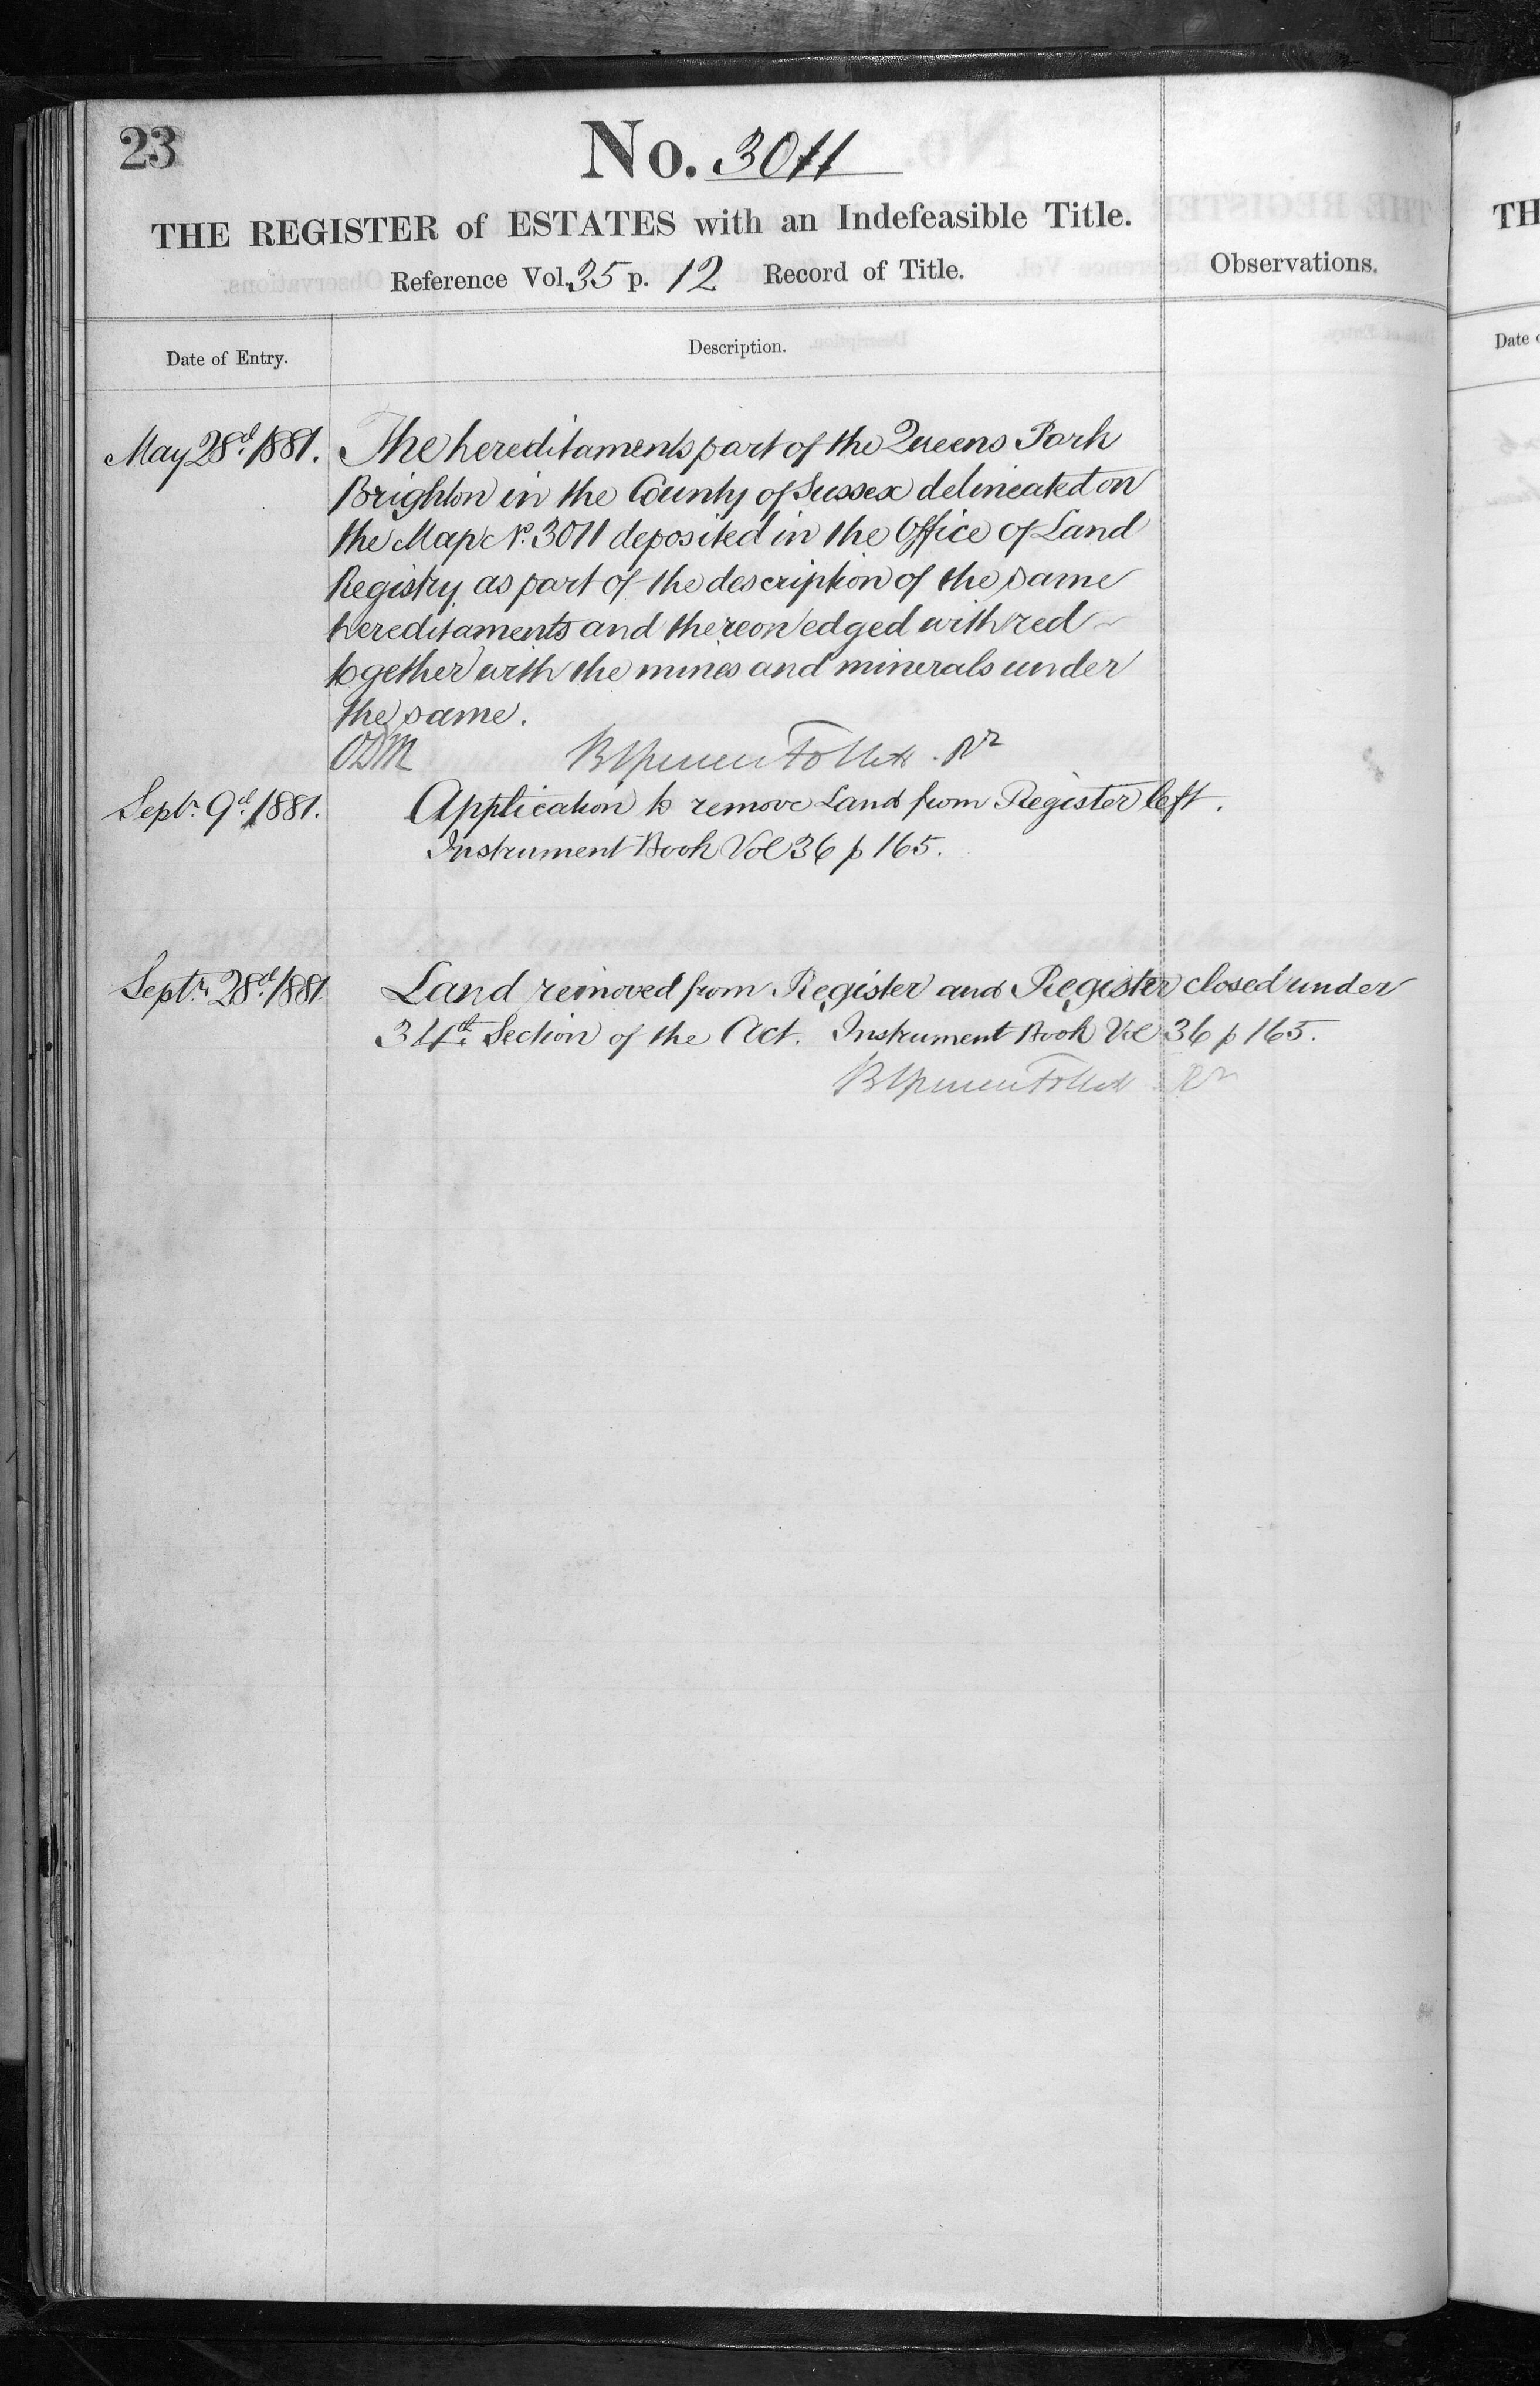 23
No. 3011
THE REGISTER of ESTATES with an Indefeasible Title.
Reference Vol. 35 p. 12 Record of Title.
Observations.
Date of Entry.
Description.
May 28th 1881. The hereditaments part of the Queens Park
Brighton in the County of Sussex delineated on
the Map No. 3011 deposited in the Office of Land
Registry as part of the description of the same
hereditaments and thereon edged with red
together with the mines and minerals under
the same.
ODM
Septr. 9th 1881. Application to remove Land from Register left.
Instrument Book Vol 36 p 165.
Septr. 28th 1881 Land removed from Register and Register closed under
34th Section of the Act. Instrument Book Vol 36 p 165.
TH
Date